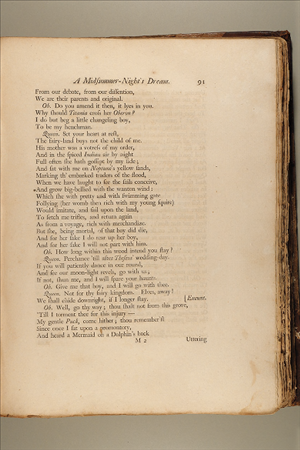 A Midsummer-Night's Dream. 91
From our debate, from our dissention,
We are their parents and original.
Ob. Do you amend it then, it lyes in you.
Why should Titania cross her Oberon?
I do but beg a little changeling boy,
To be my henchman.
Queen. Set your heart at rest,
The fairy-land buys not the child of me.
His mother was a votress of my order,
And in the spiced Indian air by night
Full often she hath gossipt by my side;
And sat with me on Neptune's yellow sands,
Marking th' embarked traders of the flood,
When we have laught to see the sails conceive,
And grow big-bellied with the wanton wind:
Which she with pretty and with swimming gate
Follying (her womb then rich with my young squire)
Would imitate, and sail upon the land,
To fetch me trifles, and return again
As from a voyage, rich with merchandize.
But she, being mortal, of that boy did die,
And for her sake I do rear up her boy,
And for her sake I will not part with him.
Ob. How long within this wood intend you stay?
Queen. Perchance 'till after Theseus' wedding-day.
If you will patiently dance in our round,
And see our moon-light revels, go with us;
If not, shun me, and I will spare your haunts.
Ob. Give me that boy, and I will go with thee.
Queen. Not for thy fairy kingdom. Elves, away!
We shall chide downright, if I longer stay. [Exeunt.
Ob. Well, go thy way; thou shalt not from this grove,
'Till I torment thee for this injury—
My gentle Puck, come hither; thou remember'st
Since once I sat upon a promontory,
And heard a Mermaid on a Dolphin's back
M 2 Uttering